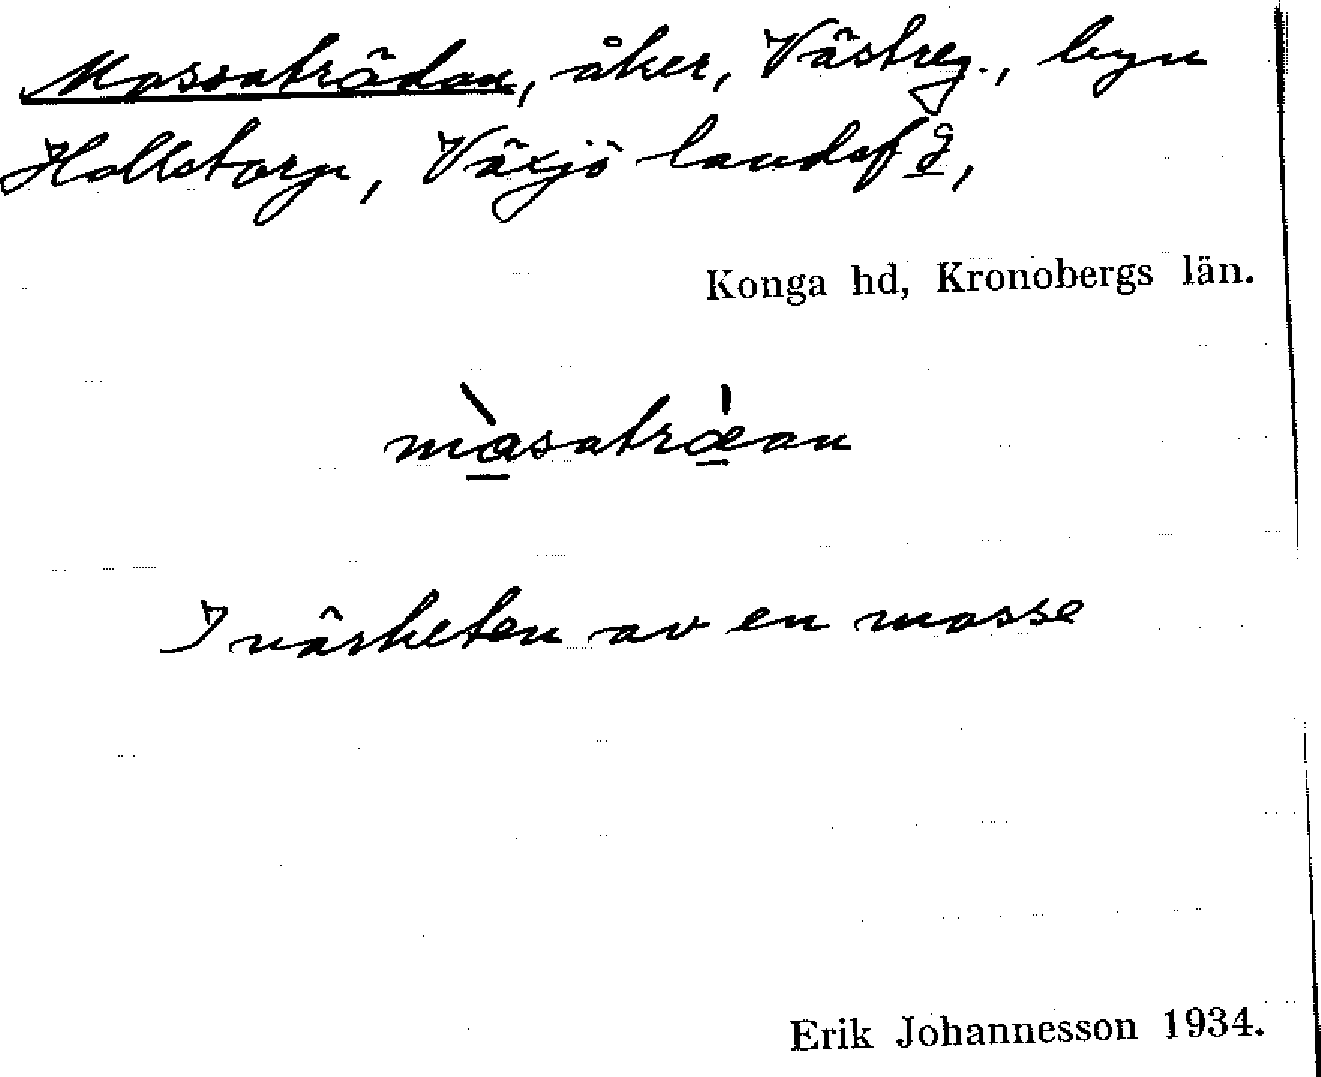 Massaträdan, åker, Västreg., byn
Hollstorp, Växjö landsf d,
Konga hd, Kronobergs län.
màsaträan
I närheten av en mosse
Erik Johannesson 1934.